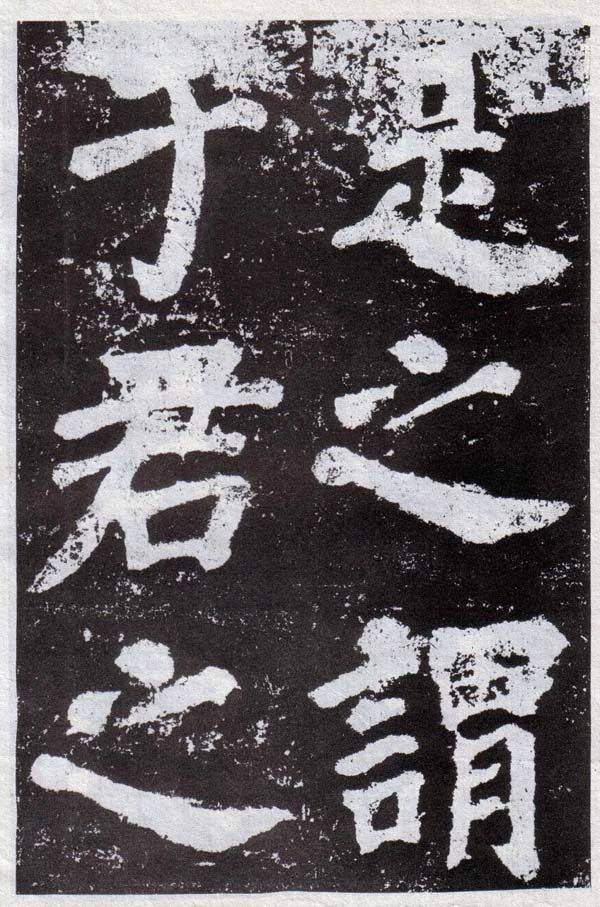 是之謂
于君之